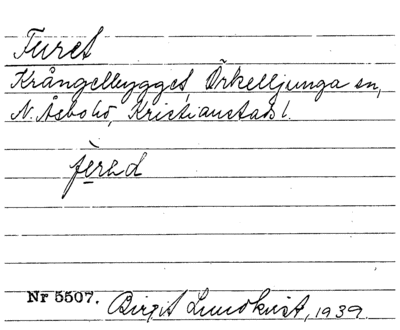 Furet
Krångelbygget, Örkelljunga sn,
N. Åsbo hd, Kristianstads l.
Nr 5507. Birgit Lundkvist, 1939.